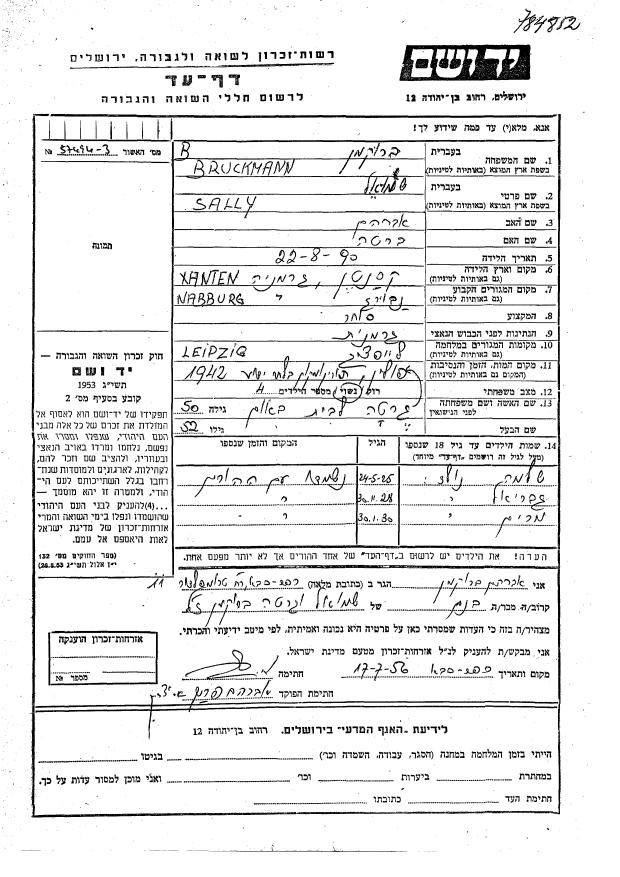 784852
רשות-זכרון לשואה ולגבורה, ירושלים
דף-עד
לרשום חללי השואה והגבורה
יד ושם
ירושלים, רחוב בן-יהודה 12
אנא, מלא(י) עד כמה שידוע לך!
מס׳ האשור 57494-3 №
תמונה
1. שם המשפחה בעברית ברוקמן
בשפת ארץ המוצא (באותיות לטיניות) B BRUCKMANN
2. שם פרטי בעברית שמואל
בשפת ארץ המוצא (באותיות לטיניות) SALLY
3. שם האב אברהם
4. שם האם ברטה
5. תאריך הלידה 22-8-90
6. מקום וארץ הלידה (גם באותיות לטיניות) קסנטן, גרמניה XANTEN
7. מקום המגורים הקבוע (גם באותיות לטיניות) NABBURG
8. המקצוע סוחר
9. הנתינות לפני הכבוש הנאצי גרמנית
10. מקומות המגורים במלחמה (גם באותיות לטיניות) לייפציג LEIPZIG
11. מקום המות, הזמן והנסיבות (המקום גם באותיות לטיניות) פולין, 1942
12. מצב משפחתי רווק נשוי מספר הילדים 4
13. שם האשה ושם משפחתה לפני הנישואין גרטה לבית גילה 50
שם הבעל גילו 52
14. שמות הילדים עד גיל 18 שנספו
(מעל לגיל זה רושמים ״דף-עד״ מיוחד)
הגיל
המקום והזמן שנספו
שלמה נולד: 24-5-25 נשמדה עם ההורים
גבריאל ״ 30.11.28 ״
מרים ״ 30.1.30 ״
הערה! את הילדים יש לרשום ב״דף-העד״ של אחד ההורים אך לא יותר מפעם אחת.
חוק זכרון השואה והגבורה —
יד ושם
תשי״ג 1953
קובע בסעיף מס׳ 2
תפקידו של יד-ושם הוא לאסוף אל
המולדת את זכרם של כל אלה מבני
העם היהודי, שנפלו ומסרו את
נפשם, נלחמו ומרדו באויב הנאצי
ובעוזריו, ולהציב שם וזכר להם,
לקהילות, לארגונים ולמוסדות שנח־
רבו בגלל השתייכותם לעם היהו־
די, ולמטרה זו יהא מוסמך —
...(4) להעניק לבני העם היהודי
שהושמדו ונפלו בימי השואה והמרי
אזרחות-זכרון של מדינת ישראל
לאות היאספם אל עמם.
(ספר החוקים מס׳ 132
י״ז אלול תשי״ג 28.8.53)
אני אברהם ברוקמן הגר ב (כתובת מלאה) כפר-סבא, רח׳ טרומפלדור 11
קרוב/ה מכר/ה בנם של שמואל וגרטה ברוקמן ז״ל
מצהיר/ה בזה כי העדות שמסרתי כאן על פרטיה היא נכונה ואמיתית, לפי מיטב ידיעתי והכרתי.
אני מבקש/ת להעניק לנ״ל אזרחות-זכרון מטעם מדינת ישראל.
מקום ותאריך כפר-סבא 17-7-56 חתימה
חתימת הפוקד
אזרחות-זכרון הוענקה
מספר №
לידיעת ״האגף המדעי״ בירושלים. רחוב בן-יהודה 12
הייתי בזמן המלחמה במחנה (הסגר, עבודה, השמדה וכו׳) בגיטו
במחתרת ביערות וכו׳ ואני מוכן למסור עדות על כך.
חתימת העד כתובתו